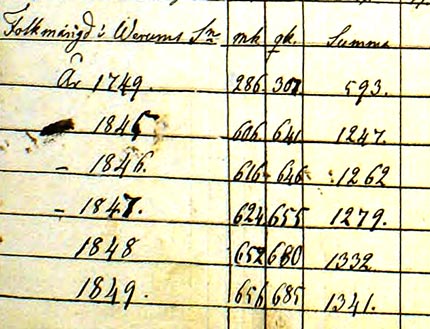 Folkmängd i Werums Sn mk. qk. Summa
År 1749. 286. 307 593.
1845 606 641 1247.
- 1846. 616 646 1262
- 1847. 624 655 1279.
1848 652 680 1332
1849. 656 685 1341.